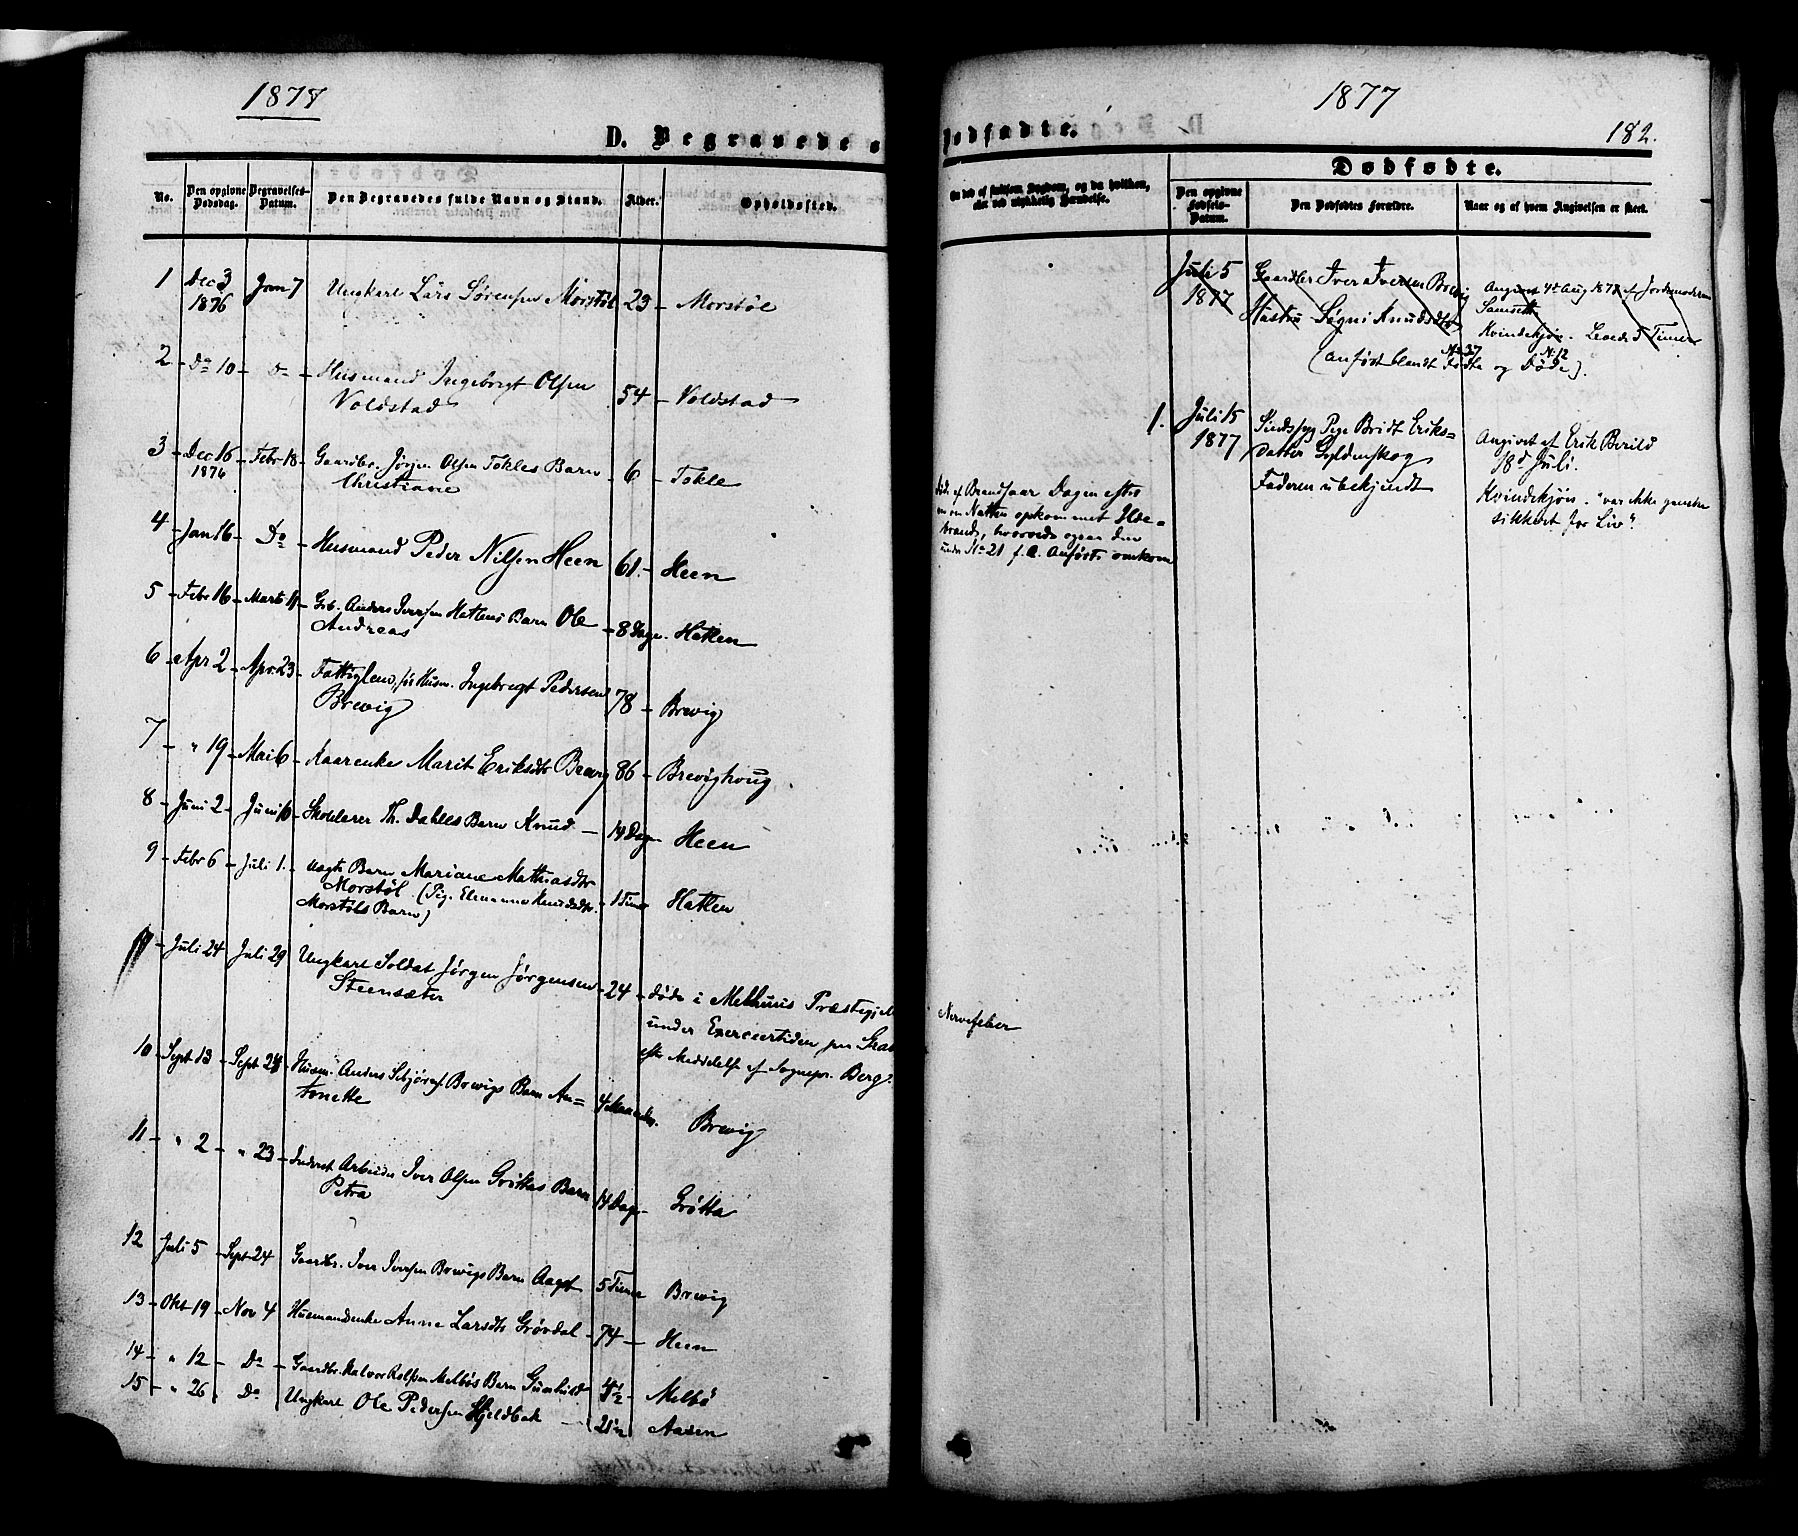 1877
D. Begravede o
No.
Den opgivne Dødsdag.
Begravelses-Datum.
Den Begravedes fulde Navn og Stand.
Alder.
Opholdssted.
1 Dec 3 1876 Jan 7 Ungkarl Lars Sörensen Morstöl 23 Morstöl
2 Do 10 Do Husmand Ingebregt Olsen
Voldstad 54 Voldstad
3 Dec 16 1876 Febr 18 Gaardbr. Jörgen Olsen Tokles Barn
Christiane 6 Tokle
4 Jan 16 Do Husmand Peder Nilsen Heen 61 Heen
5 Febr 16 Marts 11 Grb. Anders Iversen Hatlens Barn Ole
Andreas 8 Dage Hatlen
6 Apr 2 Apr. 23 Fattiglem, Husm. Ingebregt Pedersen
Brevig 78 Brevig
7 " 19 Mai 6 Kaarenke Marit Eriksdtr Brevig 86 Brevighoug
8 Juni 2 Juni 10 Skolelærer Th. Dahles Barn Knud 14 Dage Heen
9 Febr 6 Juli 1. uægte Barn Mariane Mathiasdtr
Morstöl (Pig. Knudsdtr.
Morstöls Barn) 1 Time Hatlen
Juli 24 Juli 29 Ungkarl Soldat Jörgen Jörgensen
Steensæter 24 döde i Melhuus Præstegjeld
under Exercertiden paa
efter Meddelelse af Sognepr. Berg
10 Sept 13 Sept 24 Husm. Anders Brevigs Barn An=
tonette 4 Maaneder Brevig
11 " 2 " 23 Inderst Arbeider Iver Olsen Gröttas Barn
Petra 14 Dage Grötta
12 Juli 5 Sept 24 Gaardbr. Iver Iversen Brevigs Barn 5 Timer Brevig
13 Okt 19 Nov 4 Husmandsenke Anne Larsdtr Grövdal 74 Heen
14 " 12 Do Gaardbr. Halvor Melbös Barn Gunhild 4½ Melbö
15 " 26 Do Ungkarl Ole Pedersen Hjeldbak 21½ Aasen
1877
182.
Dødfødte.
Om død af smitsom Sygdom, og da hvilken,
eller ved ulykkelig Hændelse.
Død af Brandsaar Dagen efter
en om Natten opkommet Ilde=
brand, hvorved ogsaa den
under No 21 f. A. Anførte omkom
Nervefeber
Dødfødte.
Den opgivne Fødsels-Datum.
Den Dødfødtes Forældre.
Naar og af hvem Angivelsen er skeet.
Juli 5
1877
Gaardbr Iver Iversen Brevig
Hustru Sögni Knudsdtr
(anført blandt Födte No 37 og Döde No 12).
Angivet 4de Aug 1877 af Jordemoderen
Samsett
Kvindekjön. Levede 5 Timer
1. Juli 15
1877
Sindssyg Pige Brit Eriks=
datter Gyldenskog
Faderen ubekjendt
Angivet af Erik Berild
18d Juli.
Kvindekjön. "var ikke ganske
sikkert for Liv".